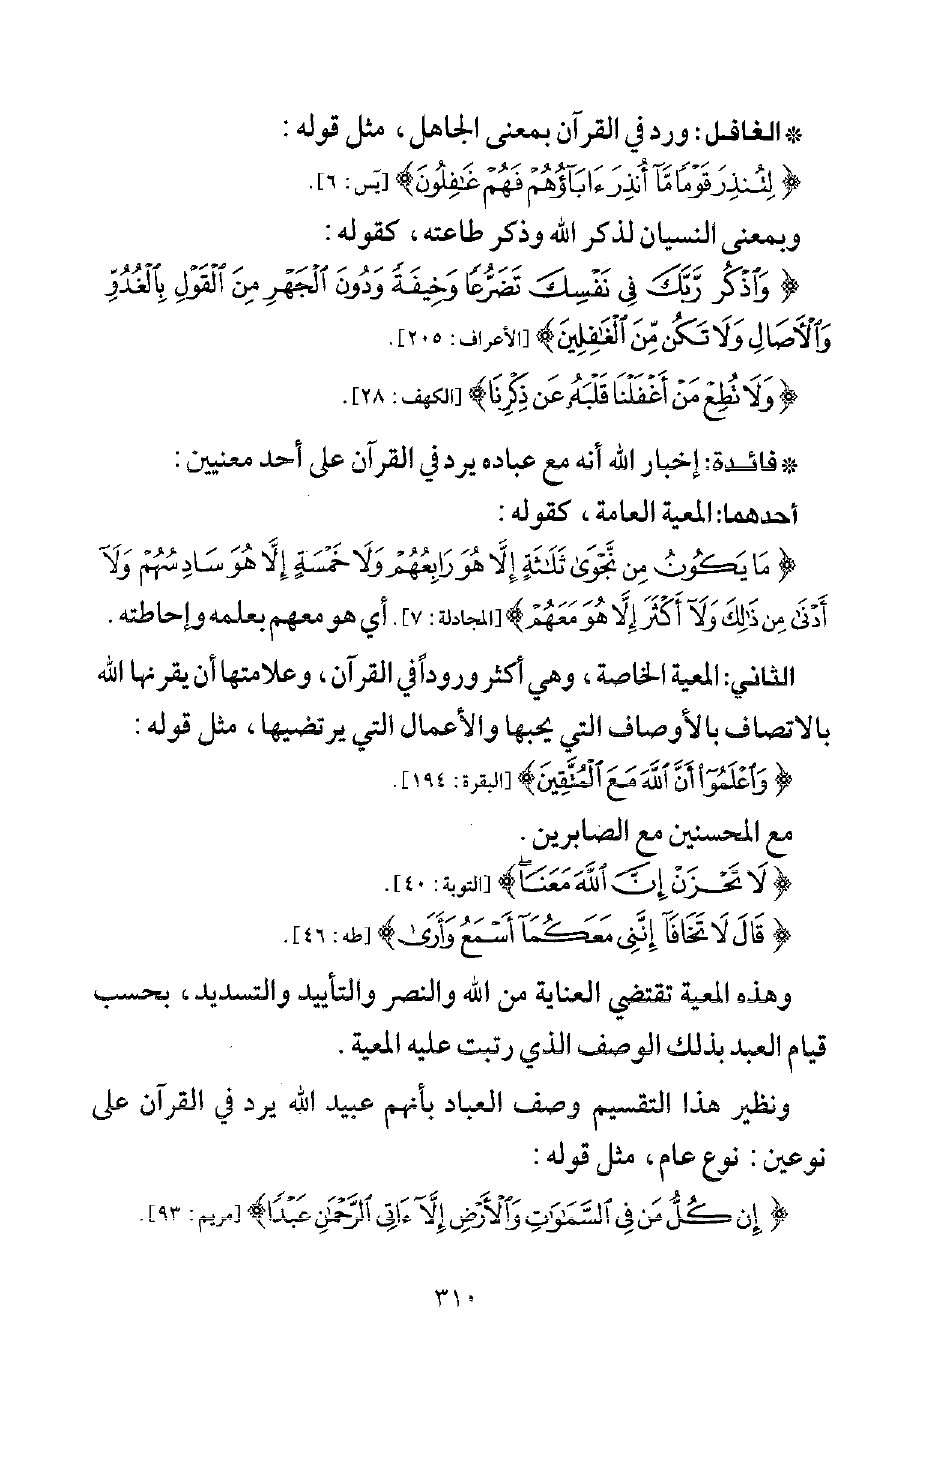 * الغافل: ورد في القرآن بمعنى الجاهل، مثل قوله:
﴿ لِتُنذِرَ قَوْمًا مَّآ أُنذِرَ ءَابَآؤُهُمْ فَهُمْ غَٰفِلُونَ ﴾ [يَس: ٦].
وبمعنى النسيان لذكر الله وذكر طاعته، كقوله:
﴿ وَٱذْكُر رَّبَّكَ فِى نَفْسِكَ تَضَرُّعًا وَخِيفَةً وَدُونَ ٱلْجَهْرِ مِنَ ٱلْقَوْلِ بِٱلْغُدُوِّ
وَٱلْءَاصَالِ وَلَا تَكُن مِّنَ ٱلْغَٰفِلِينَ ﴾ [الأعراف: ٢٠٥].
﴿ وَلَا تُطِعْ مَنْ أَغْفَلْنَا قَلْبَهُۥ عَن ذِكْرِنَا ﴾ [الكهف: ٢٨].
* فائدة: إخبار الله أنه مع عباده يرد في القرآن على أحد معنيين:
أحدهما: المعية العامة، كقوله:
﴿ مَا يَكُونُ مِن نَّجْوَىٰ ثَلَٰثَةٍ إِلَّا هُوَ رَابِعُهُمْ وَلَا خَمْسَةٍ إِلَّا هُوَ سَادِسُهُمْ وَلَآ
أَدْنَىٰ مِن ذَٰلِكَ وَلَآ أَكْثَرَ إِلَّا هُوَ مَعَهُمْ ﴾ [المجادلة: ٧]. أي هو معهم بعلمه وإحاطته.
الثاني: المعية الخاصة، وهي أكثر وروداً في القرآن، وعلامتها أن يقرنها الله
بالاتصاف بالأوصاف التي يحبها والأعمال التي يرتضيها، مثل قوله:
﴿ وَٱعْلَمُوٓا۟ أَنَّ ٱللَّهَ مَعَ ٱلْمُتَّقِينَ ﴾ [البقرة: ١٩٤].
مع المحسنين مع الصابرين.
﴿ لَا تَحْزَنْ إِنَّ ٱللَّهَ مَعَنَا ۖ ﴾ [التوبة: ٤٠].
﴿ قَالَ لَا تَخَافَآ إِنَّنِى مَعَكُمَآ أَسْمَعُ وَأَرَىٰ ﴾ [طه: ٤٦].
وهذه المعية تقتضي العناية من الله والنصر والتأييد والتسديد، بحسب
قيام العبد بذلك الوصف الذي رتبت عليه المعية.
ونظير هذا التقسيم وصف العباد بأنهم عبيد الله يرد في القرآن على
نوعين: نوع عام، مثل قوله:
﴿ إِن كُلُّ مَن فِى ٱلسَّمَٰوَٰتِ وَٱلْأَرْضِ إِلَّآ ءَاتِى ٱلرَّحْمَٰنِ عَبْدًا ﴾ [مريم: ٩٣].
٣١٠